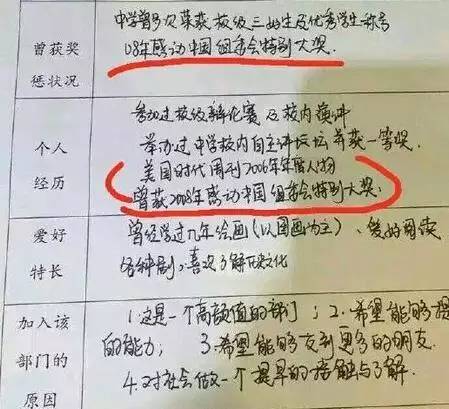 中学曾多次荣获校级三好生及优秀学生称号
曾获奖
08年感动中国组委会特别大奖.
惩状况
参加过校级辩论赛及校内演讲
个人
举办过中学校内自主讲坛并获一等奖.
美国时代周刊2006年年度人物
经历
曾获2008年感动中国组委会特别大奖.
爱好
曾经学过几年绘画(以国画为主)、爱好阅读
特长
各种剧、喜欢了解历史文化
加入该
1.这是一个高颜值的部门；2.希望能够提
部门的
的能力；3.希望能够交到更多的朋友.
原因
4.对社会做一个提早的接触与了解.